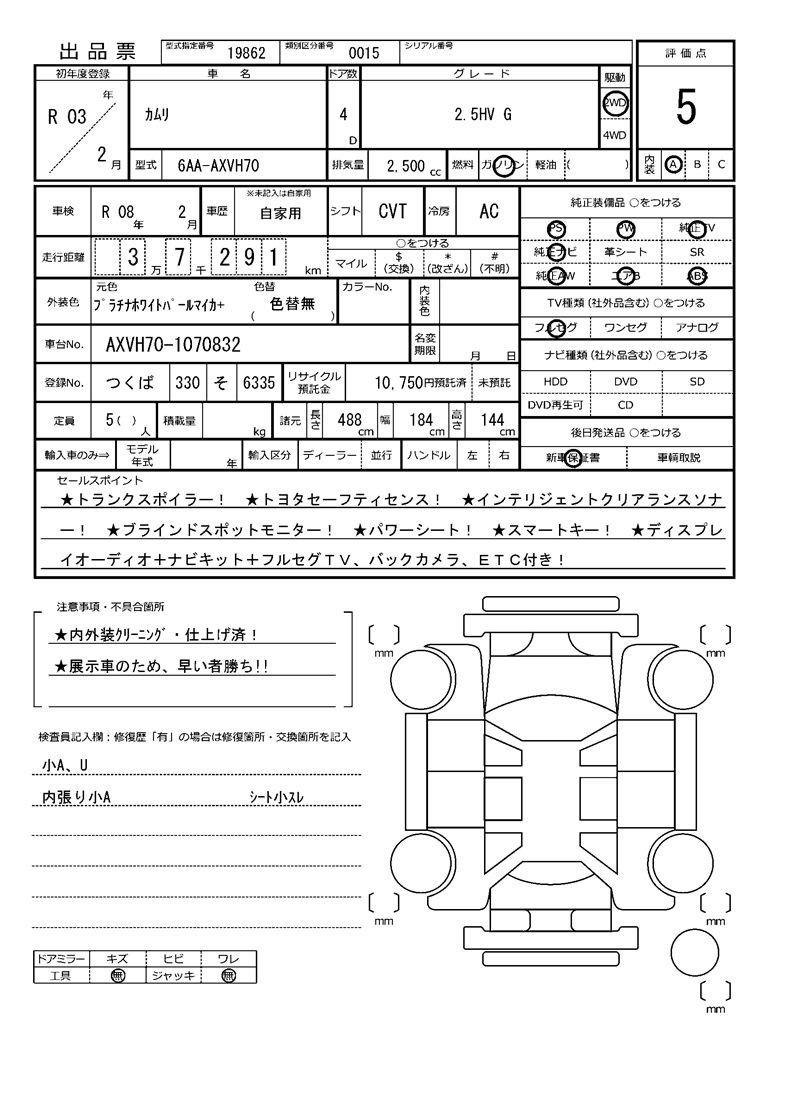 出品票 型式指定番号 19862 類別区分番号 0015 シリアル番号
評価点 5
初年度登録 車名 ドア数 グレード 駆動
R 03 年 2 月 カムリ 4 D 2.5HV G 2WD 4WD
型式 6AA-AXVH70 排気量 2,500 cc 燃料 ガソリン 軽油 ( )
内装 A B C
車検 R 08 年 2 月 車歴 ※未記入は自家用 自家用 シフト CVT 冷房 AC
走行距離 3 万 7 千 2 9 1 km ○をつける
マイル $ (交換) * (改ざん) # (不明)
外装色 元色 ﾌﾟﾗﾁﾅﾎﾜｲﾄﾊﾟｰﾙﾏｲｶ+ 色替 ( 色替無 ) カラーNo. 内装色
車台No. AXVH70-1070832 名変期限 月 日
登録No. つくば 330 そ 6335 リサイクル預託金 10,750円預託済 未預託
定員 5 ( ) 人 積載量 kg 諸元 長さ 488 cm 幅 184 cm 高さ 144 cm
輸入車のみ⇒ モデル年式 年 輸入区分 ディーラー 並行 ハンドル 左 右
純正装備品 ○をつける
PS PW 純正TV
純正ナビ 革シート SR
純正AW エアB ABS
TV種類(社外品含む) ○をつける
フルセグ ワンセグ アナログ
ナビ種類(社外品含む) ○をつける
HDD DVD SD
DVD再生可 CD
後日発送品 ○をつける
新車保証書 車輌取説
セールスポイント
★トランクスポイラー！ ★トヨタセーフティセンス！ ★インテリジェントクリアランスソナ
ー！ ★ブラインドスポットモニター！ ★パワーシート！ ★スマートキー！ ★ディスプレ
イオーディオ＋ナビキット＋フルセグＴＶ、バックカメラ、ＥＴＣ付き！
注意事項・不具合箇所
★内外装ｸﾘｰﾆﾝｸﾞ・仕上げ済！
★展示車のため、早い者勝ち!!
検査員記入欄：修復歴「有」の場合は修復箇所・交換箇所を記入
小A、U
内張り小A ｼｰﾄ小スレ
ドアミラー キズ ヒビ ワレ
工具 無 ジャッキ 無
mm
mm
mm
mm
mm